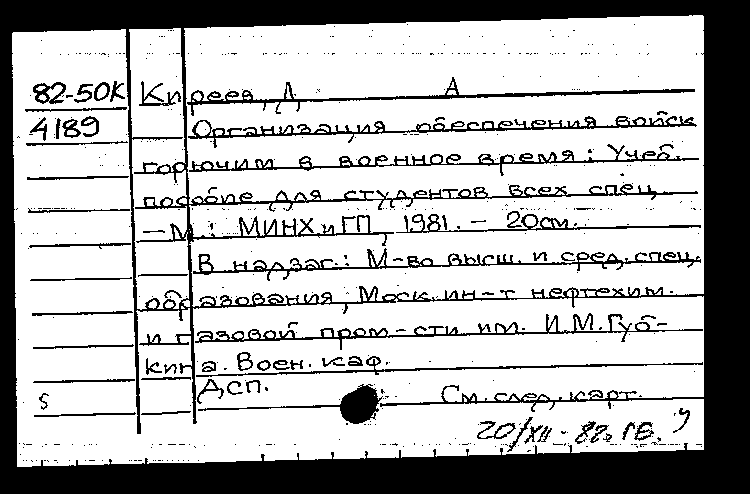 82-50К Киреев, Д А
4189 Организация обеспечения войск
горючим в военное время: Учеб.
пособие для студентов всех спец.
— М.: МИНХ и ГП, 1981. — 20см.
В надзаг.: М-во высш. и сред. спец.
образования, Моск. ин-т нефтехим.
и газовой пром-сти им. И.М.Губ-
кина. Воен. каф.
ДСП.
s См. след. карт.
20/XII-82г. ГБ. у